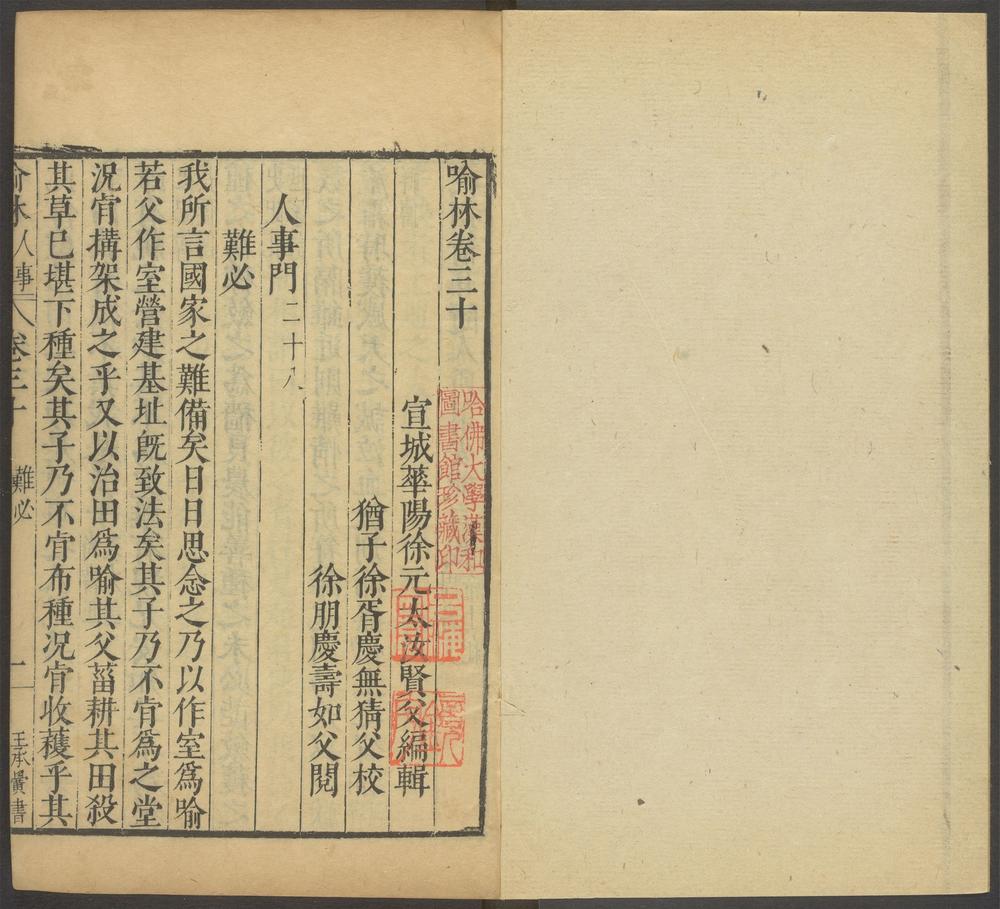 喻林卷三十
宣城華陽徐元太汝賢父編輯
猶子徐胥慶無猜父校
徐朋慶壽如父閱
人事門二十八
難必
我所言國家之難備矣日日思念之乃以作室爲喻
若父作室營建基址旣致法矣其子乃不肎爲之堂
況肎構架成之乎又以治田爲喻其父菑耕其田殺
其草巳堪下種矣其子乃不肎布種况肎收穫乎其
喻林 人事二八 卷三十 難必 一 王承爵書
哈佛大學漢和
圖書館珍藏印